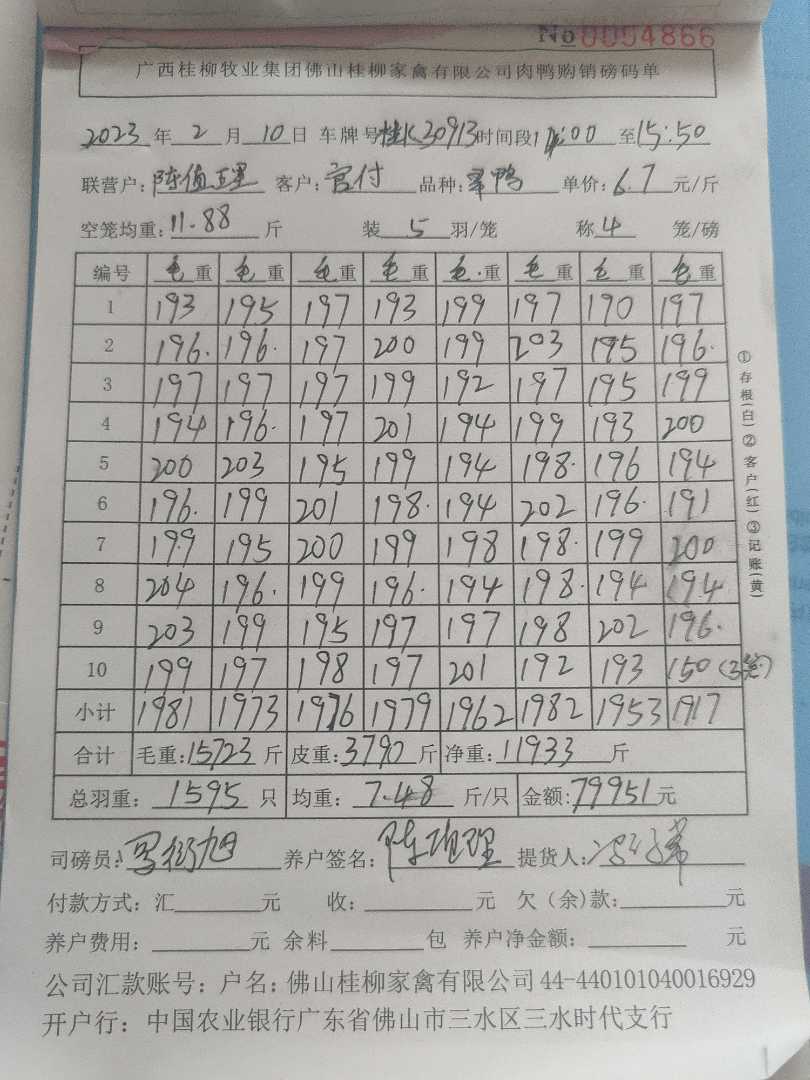 No 0004866
广西桂柳牧业集团佛山桂柳家禽有限公司肉鸭购销磅码单
2023 年 2 月 10 日 车牌号 桂K30913 时间段 14:00 至 15:50
联营户: 陈值理 客户: 官付 品种: 单价: 6.7 元/斤
空笼均重: 11.88 斤 装 5 羽/笼 称 4 笼/磅
编号 毛重 毛重 毛重 毛重 毛重 毛重 毛重 毛重
1 193 195 197 193 199 197 190 197
2 196. 196. 197 200 199 203 195 196.
3 197 197 197 199 192 197 195 199
4 194 196. 197 201 194 199 193 200
5 200 203 195 199 194 198. 196 194
6 196. 199 201 198. 194 202 196. 191
7 199 195 200 199 198 198. 199 200
8 204 196. 199 196. 194 198. 194 194
9 203 199 195 197 197 198 202 196.
10 199 197 198 197 201 192 193 150 (3笼)
小计 1981 1973 1976 1979 1962 1982 1953 1917
合计 毛重: 15723 斤 皮重: 3790 斤 净重: 11933 斤
总羽重: 1595 只 均重: 7.48 斤/只 金额: 79951 元
司磅员: 养户签名: 提货人:
付款方式: 汇 元 收: 元 欠(余)款: 元
养户费用: 元 余料 包 养户净金额: 元
公司汇款账号: 户名: 佛山桂柳家禽有限公司 44-440101040016929
开户行: 中国农业银行广东省佛山市三水区三水时代支行
①存根(白)②客户(红)③记账(黄)